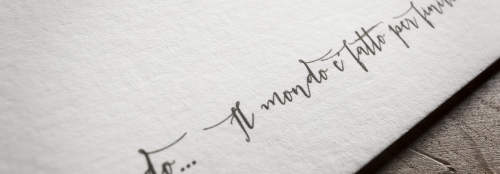 do... Il mondo è fatto per finire